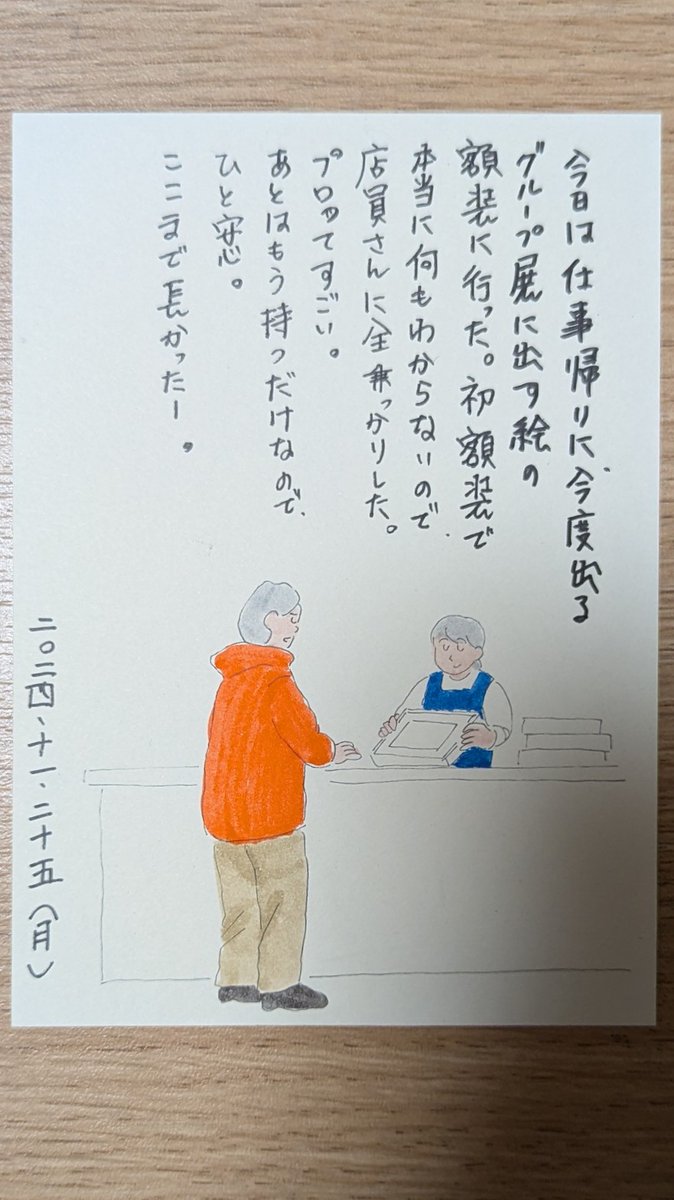 今日は仕事帰りに、今度出る
グループ展に出す絵の
額装に行った。初額装で
本当に何もわからないので、
店員さんに全乗っかりした。
プロってすごい。
あとはもう持つだけなので、
ひと安心。
ここまで長かったー。
二〇二四、十一、二十五（月）